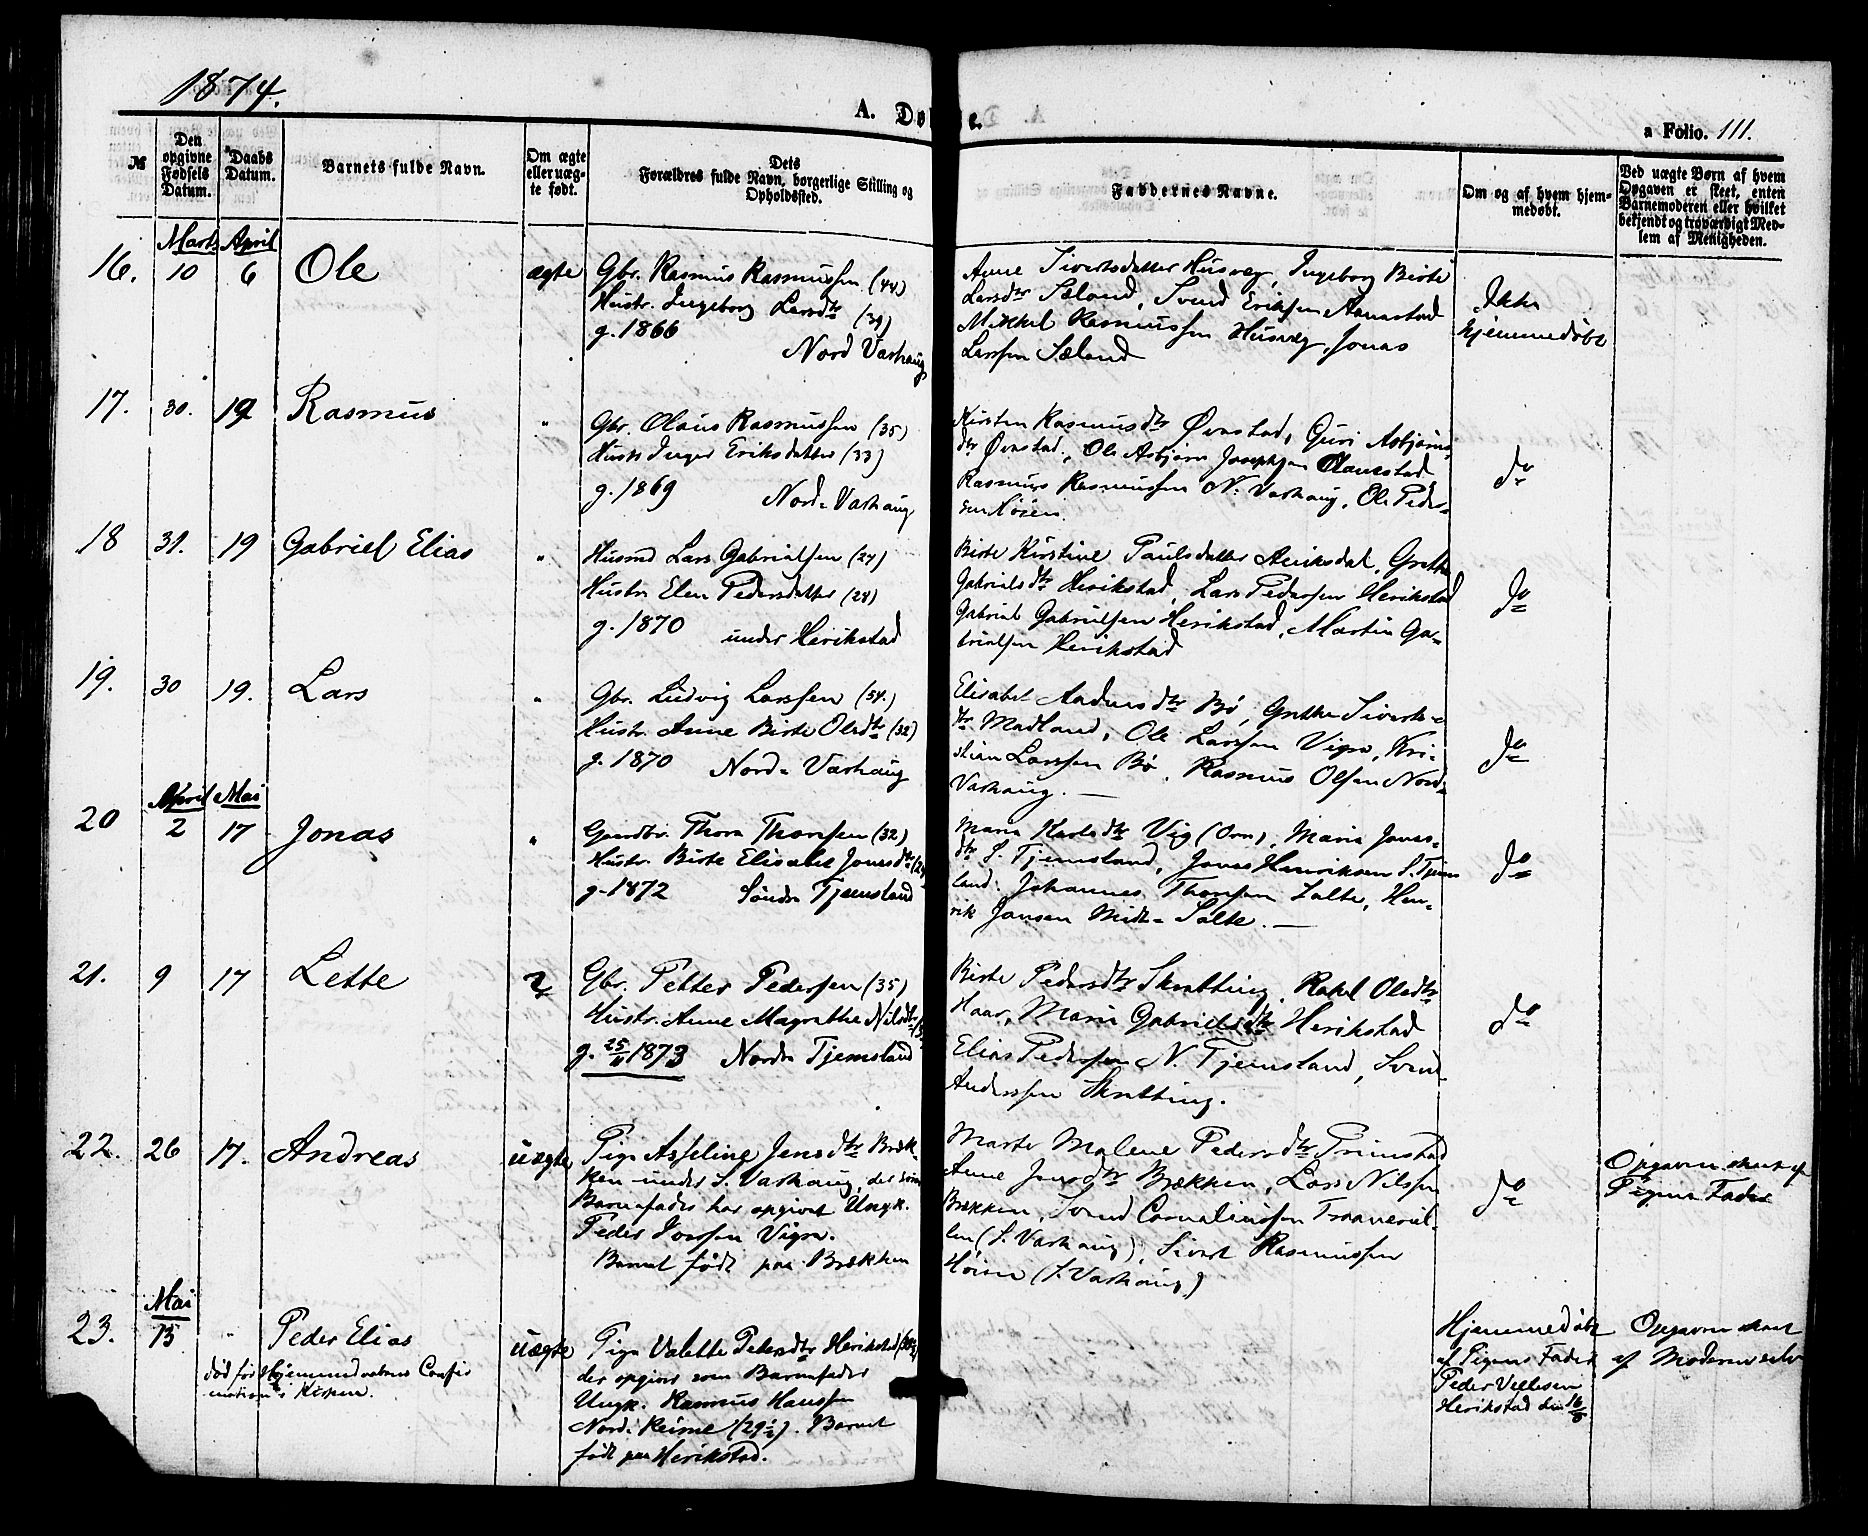 1874.
A. Døbte.
a Folio. 111.
№
Den opgivne Fødsels Datum.
Daabs Datum.
Barnets fulde Navn.
Om ægte eller uægte født.
Dets Forældres fulde Navn, borgerlige Stilling og Opholdssted.
Faddernes Navne.
Om og af hvem hjemmedøbt.
Ved uægte Børn af hvem Opgaven er skeet, enten Barnemoderen eller hvilket bekjendt og troværdigt Medlem af Menigheden.
Marts April
16. 10 6 Ole ægte
Gbr. Rasmus Rasmussen (44)
Hustr. Ingeborg Larsdtr (39)
g. 1866
Nord Varhaug
Anne Sivertsdatter Husveg, Ingeborg Birte
Larsdtr Sæland, Svend Eriksen Aanestad
Mikkel Rasmussen Husveg, Jonas
Larssen Sæland
Ikke
hjemmedøbt
17. 30. 19 Rasmus "
Gbr. Olaus Rasmussen (35)
Hustr Inger Eriksdatter (33)
g. 1869 Nord-Varhaug
Kirsten Rasmusdtr Øvestad, Guri Asbjørns
dtr Øvestad, Ole Asbjørn Josephsen Olauestad
Rasmus Rasmussen N. Varhaug, Ole Peder-
sen Høien.
do
18 31. 19 Gabriel Elias "
Husmd Lars Gabrielsen (27)
Hustr. Elen Pedersdatter (28)
g. 1870 under Herikstad
Birte Kirstine Paulsdatter Aniksdal, Grethe
Gabrielsdtr Herikstad, Lars Pedersen Herikstad
Gabriel Gabrielsen Herikstad, Martin Ga-
brielsen Herikstad
do
19. 30 19. Lars "
Gbr. Ludvig Larssen (54.)
Hustr. Anne Birte Olsdtr (32)
g. 1870 Nord-Varhaug
Elisabet Andersdtr Bø, Grethe Siverts-
dtr Madland, Ole Larssen Vigre, Kri-
stian Larssen Bø, Rasmus Olsen Nord-
Varhaug.
do
April Mai
20 2 17 Jonas "
Gaardbr. Thore Thorsen (32)
Hustr. Birte Elisabet Jonasdtr
g. 1872 Søndre Tjemsland
Maria Karlsdtr Vig (Orre), Maria Jonas-
dtr S. Tjemsland, Jonas Henriksen S. Tjems
land. Johannes Thorsen Salte, Hen-
rik Jonsen Midt-Salte.
do
21. 9 17 Lette ?
Gbr. Petter Pedersen (35)
Hustr. Anne Magrethe Nilsdtr
g. 25/11 1873 Nordre Tjemsland
Birte Pedersdtr Skratting, Rakel Olsdtr
Haar, Maria Gabrielsdtr Herikstad
Elias Pedersen N. Tjemsland, Svend
Anderssen Skratting.
do
22. 26 17. Andreas uægte
Pige Asseline Jensdtr Bræk-
ken under S. Varhaug, der som
Barnefader har opgivet Ungk.
Peder Vigre.
Barnet født paa Brækken
Marte Malene Pedersdtr Primstad
Anne Jensdtr Brækken, Lars Nilssen
Brækken, Svend Corneliussen
(S. Varhaug), Sivert Rasmussen
Høien (S. Varhaug)
do
Opgaven skeet af
Pigens Fader
Mai
23. 13 " Peder Elias uægte
død før Hjemmedaabens Confir
mation i Kirken.
Pige Valette Pedersdtr Herikstad
der opgives som Barnefader
Ungk. Rasmus Hanssen
Nord-Reime (29½). Barnet
født paa Herikstad.
Hjemmedøbt
af Pigens Fader
Peder Vellesen
Herikstad den 16/5
Opgaven skeet
af Moderen selv